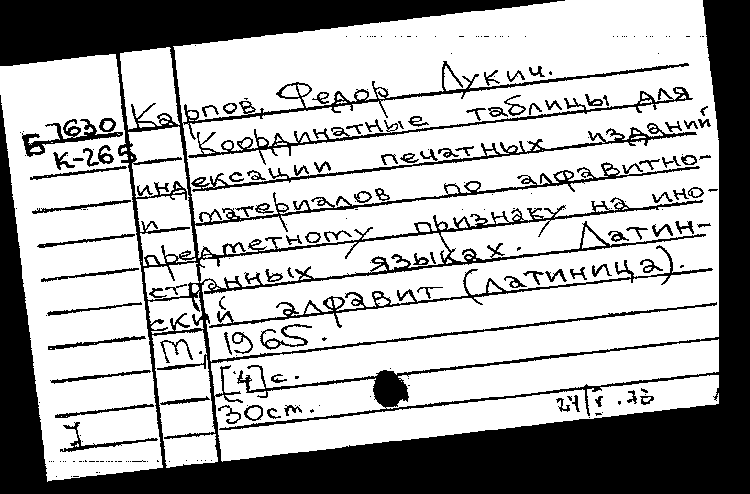 Карпов, Федор Лукич.
Б 7630
К-265
Координатные таблицы для
индексации печатных изданий
и материалов по алфавитно-
предметному признаку на ино-
странных языках. Латин-
ский алфавит (латиница).
М., 1965.
[4] с.
30 см.
24/V.73